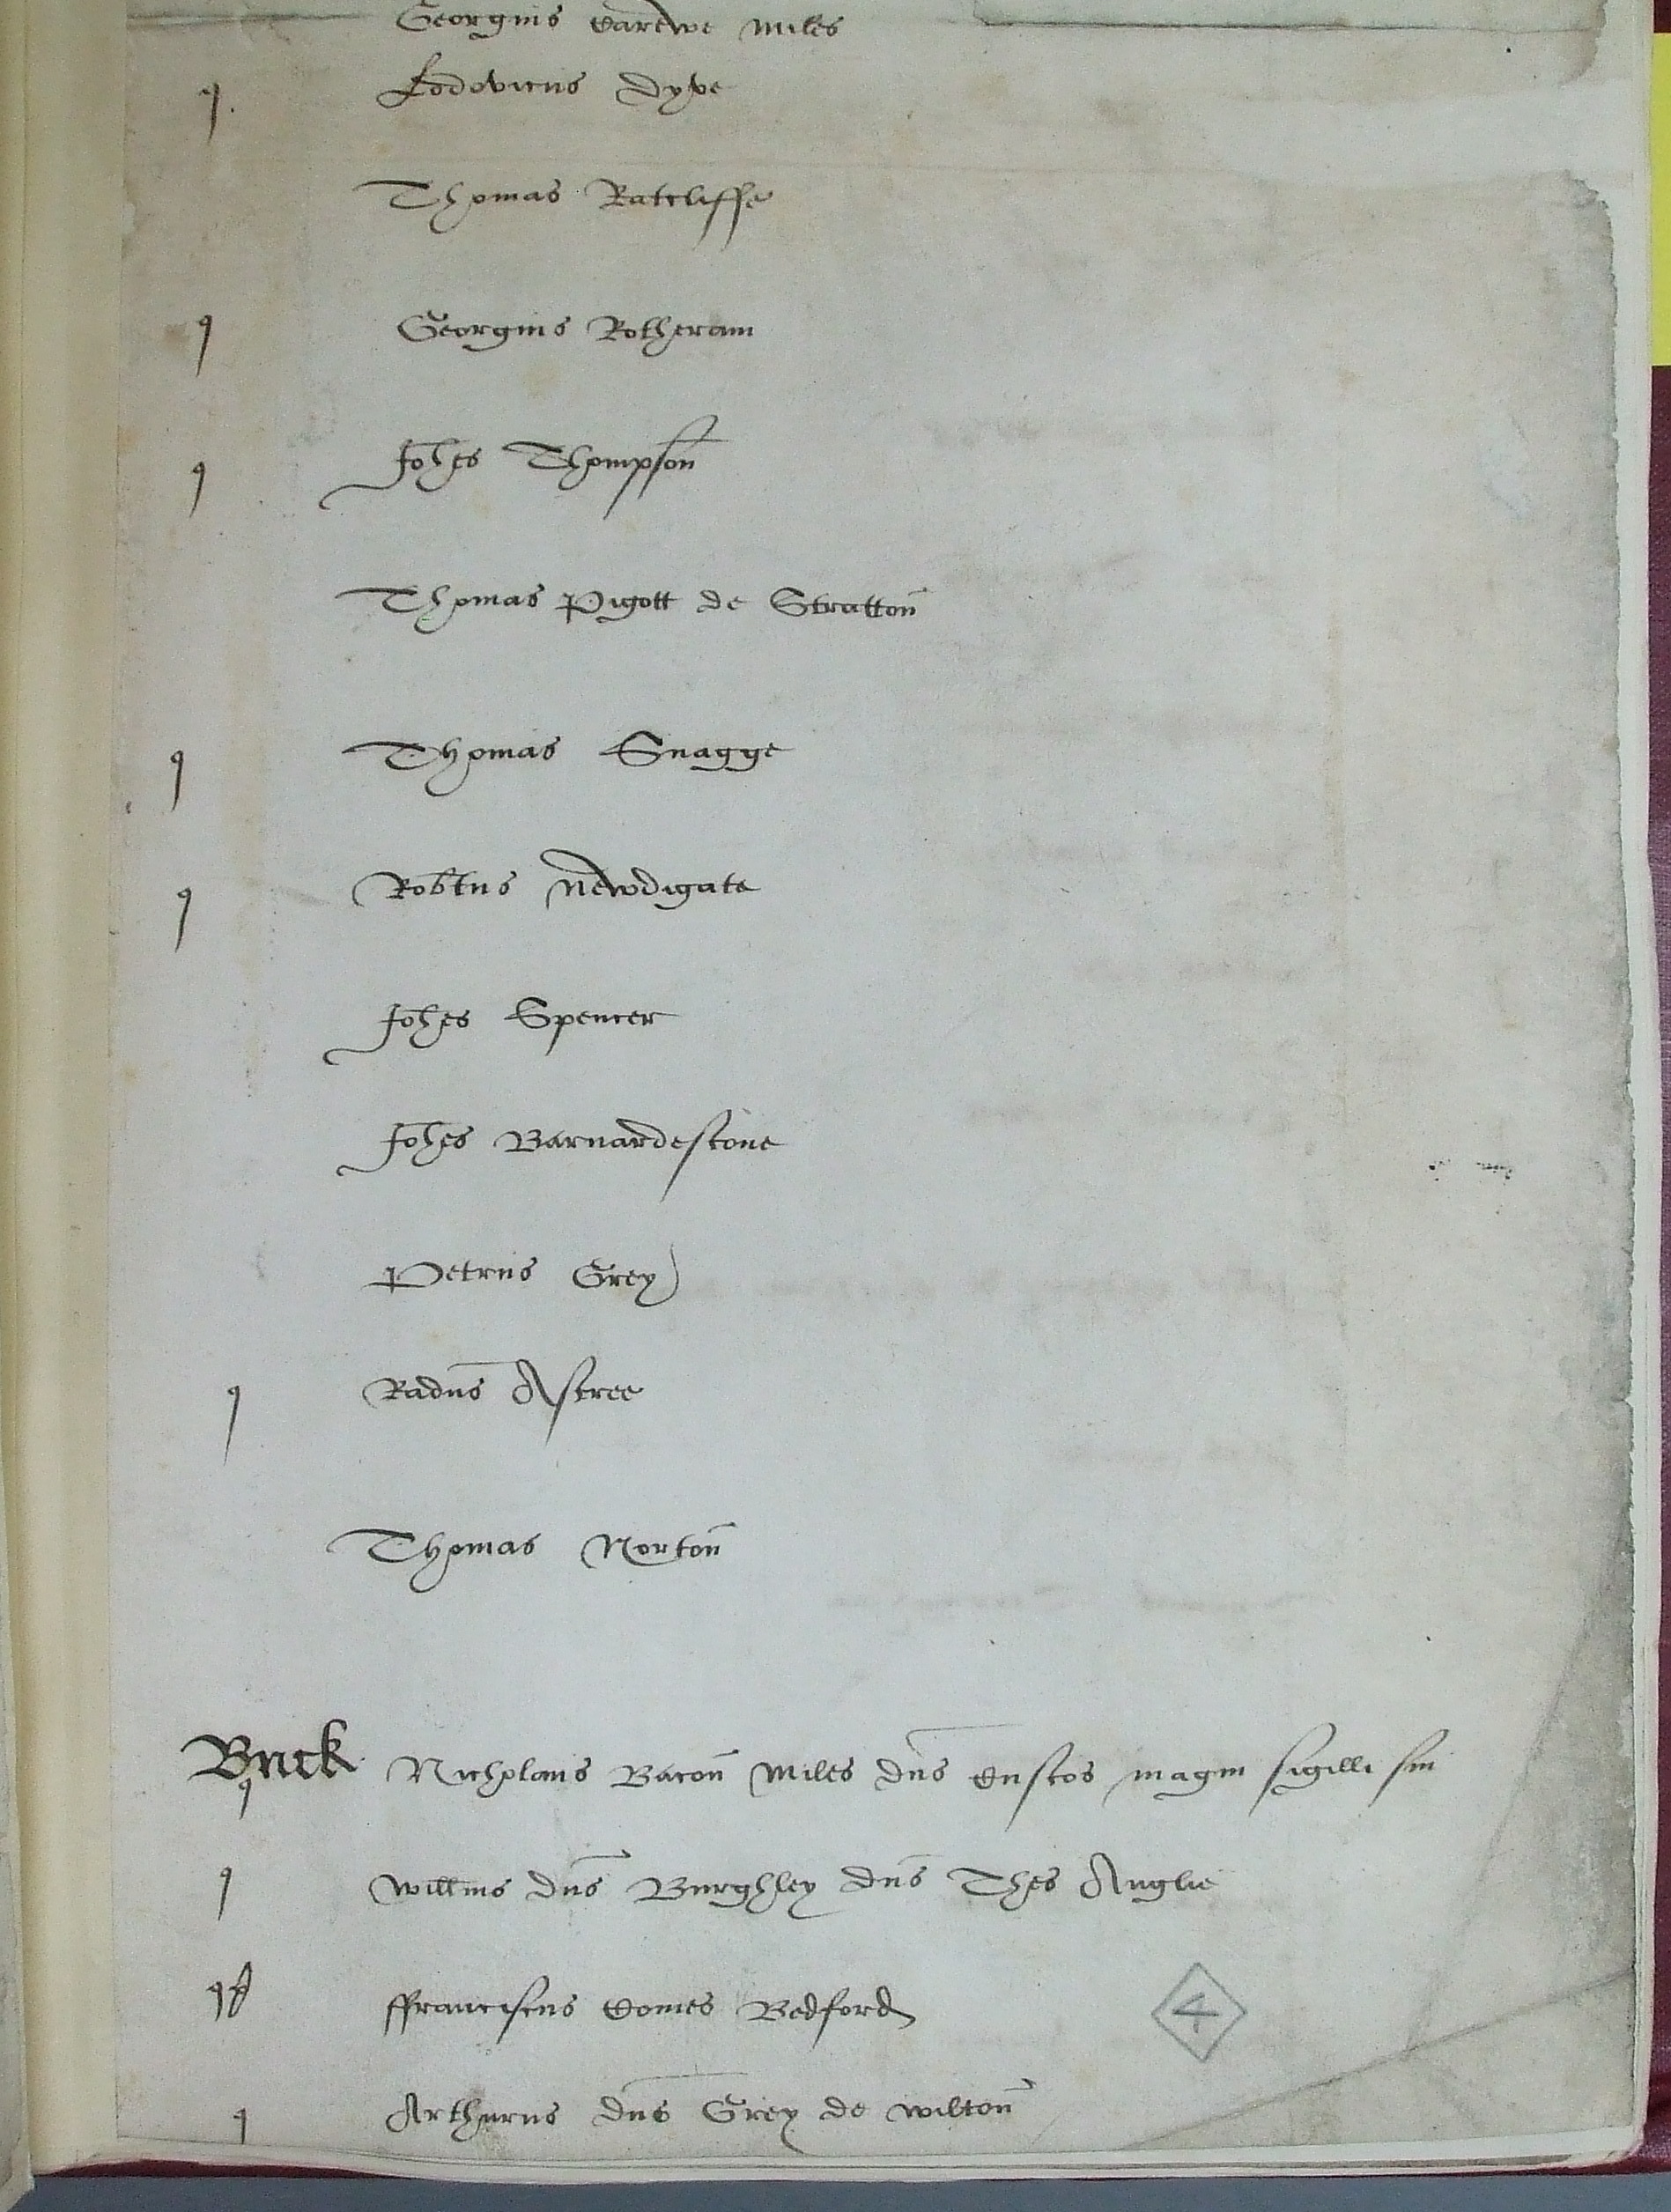 Georgius Carewe miles
q Lodovicus Dyve
Thomas Ratcliffe
q Georgius Rotheram
q Johes Thompson
Thomas Pigott de Stratton
q Thomas Snagge
q Robtus Newdigate
Johes Spencer
Johes Barnardestone
Petrus Grey
q Radus Astree
Thomas Norton
Buck
q Nicholaus Bacon miles dns Custos magni sigilli sui
q Willms dns Burghley dns Thes Anglie
q ffranciscus Comes Bedford
q Arthurus dns Grey de Wilton
4